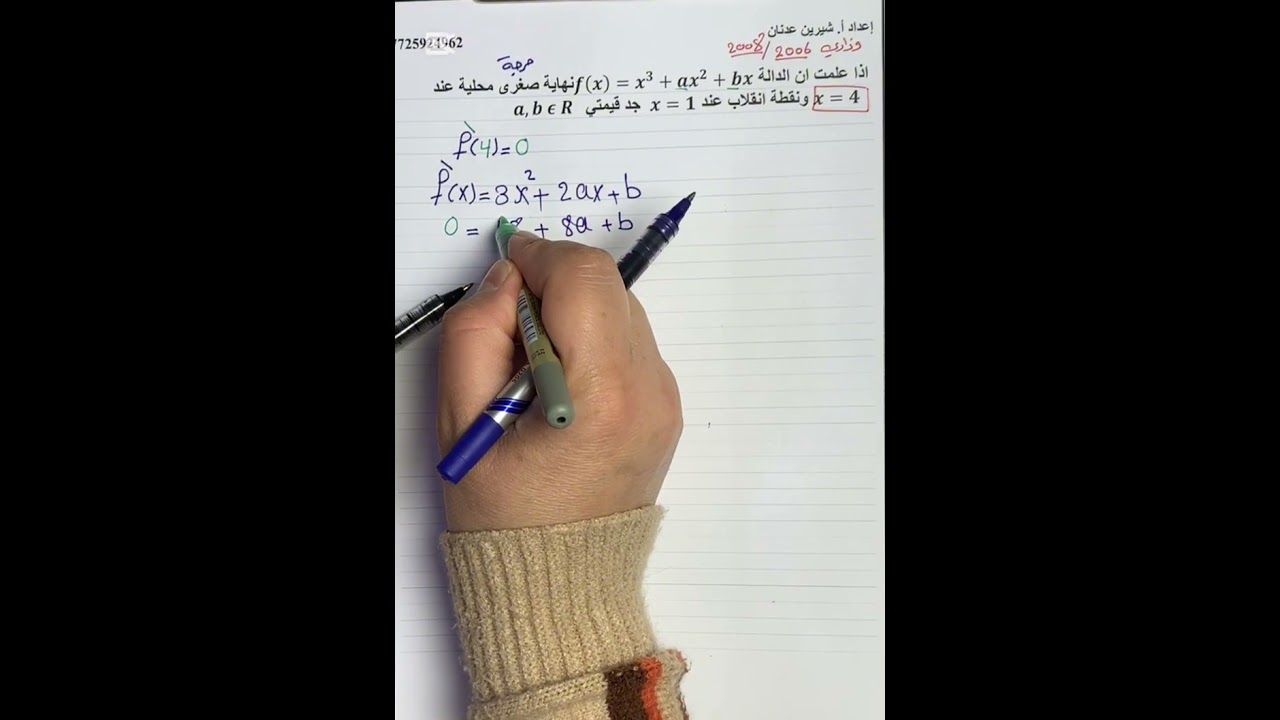 إعداد أ. شيرين عدنان
7725924962
وزاري 2006 / 2008
حرجة
اذا علمت ان الدالة f(x) = x³ + ax² + bx نهاية صغرى محلية عند
x = 4 ونقطة انقلاب عند x = 1 جد قيمتي a, b ϵ R
f`(4) = 0
f`(x) = 3x² + 2ax + b
0 = 8 + 8a + b